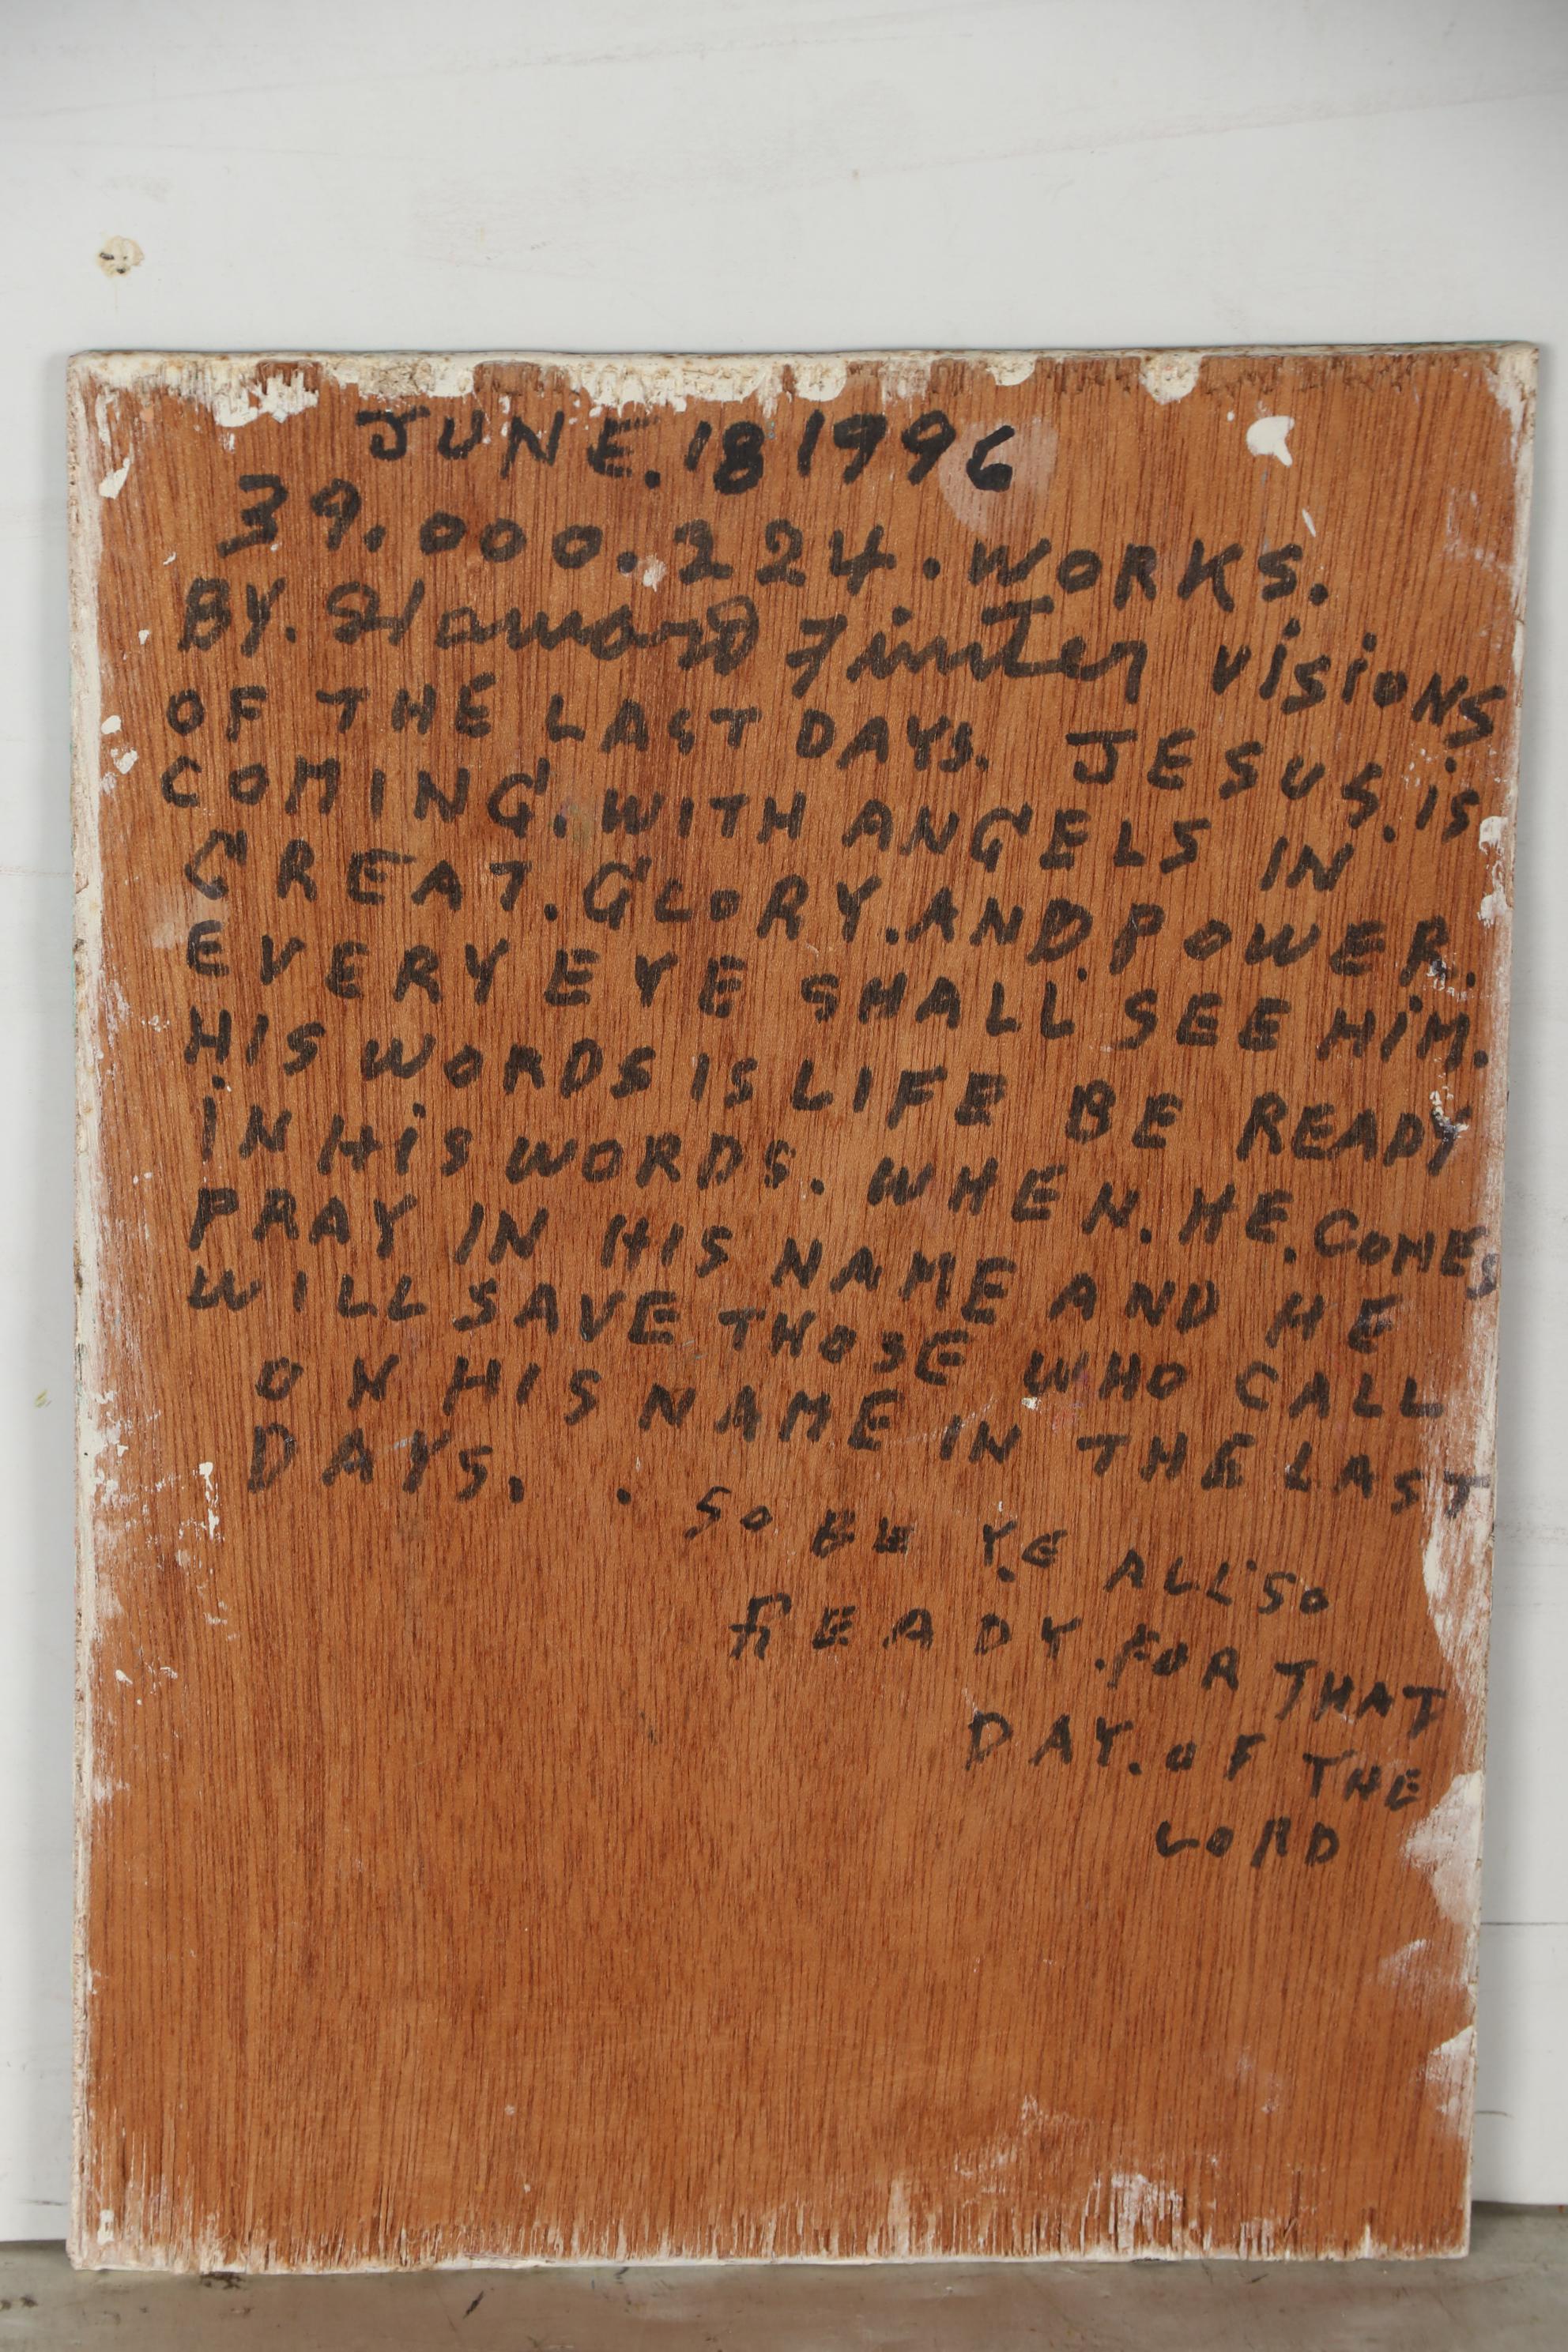 JUNE.18 1996
39.000.224.WORKS.
BY. Howard Finster VISIONS
OF THE LAST DAYS. JESUS.IS
COMING.WITH ANGELS IN
GREAT.GLORY.AND.POWER.
EVERY EYE SHALL SEE HIM.
HIS WORDS IS LIFE BE READY
IN HIS WORDS. WHEN.HE.COMES
PRAY IN HIS NAME AND HE
WILL SAVE THOSE WHO CALL
ON HIS NAME IN THE LAST
DAYS. . SO BE YE ALLSO
READY.FOR THAT
DAY.OF THE
LORD